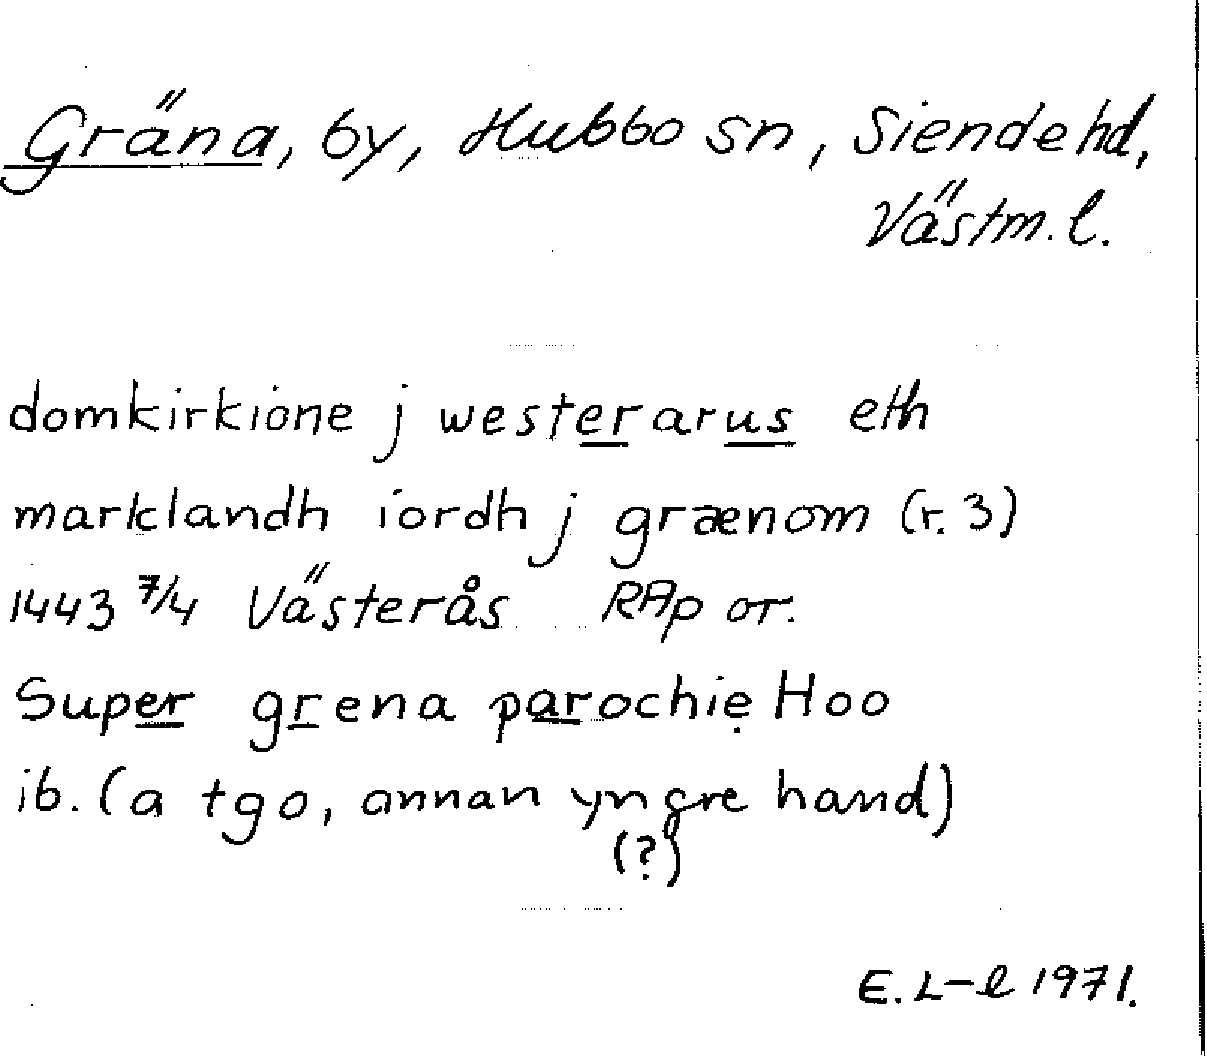 Gräna, by, Hubbo sn, Siende hd,
Västm. l.
domkirkione j westerarus eth
marklandh iordh j grænom (r. 3)
1443 7/4 Västerås RAp or.
Super grena parochię Hoo
ib. (a tgo, annan yngre hand)
(?)
E. L-l 1971.